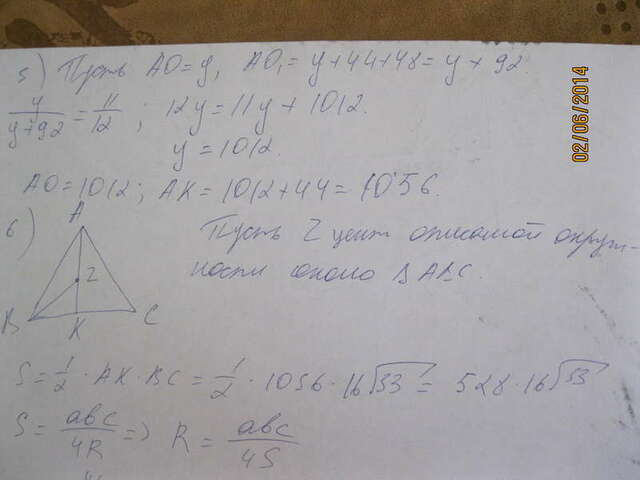 5) Пусть AO = y, AO₁ = y + 44 + 48 = y + 92.
y/(y+92) = 11/12 ; 12y = 11y + 1012.
y = 1012.
AO = 1012 ; AK = 1012 + 44 = 1056.
6)
A
Z
B
K
C
Пусть Z цент описаной окруж-
ности около ΔABC.
S = 1/2 · AK · BC = 1/2 · 1056 · 16√33 = 528 · 16√33
S = abc/4R => R = abc/4S
02/06/2014